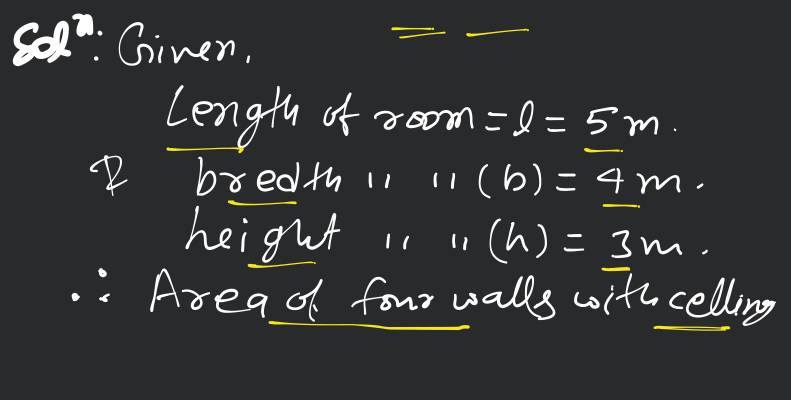 Solⁿ: Given,
Length of room = l = 5m.
& breadth " " (b) = 4m.
height " " (h) = 3m.
∴ Area of four walls with celling